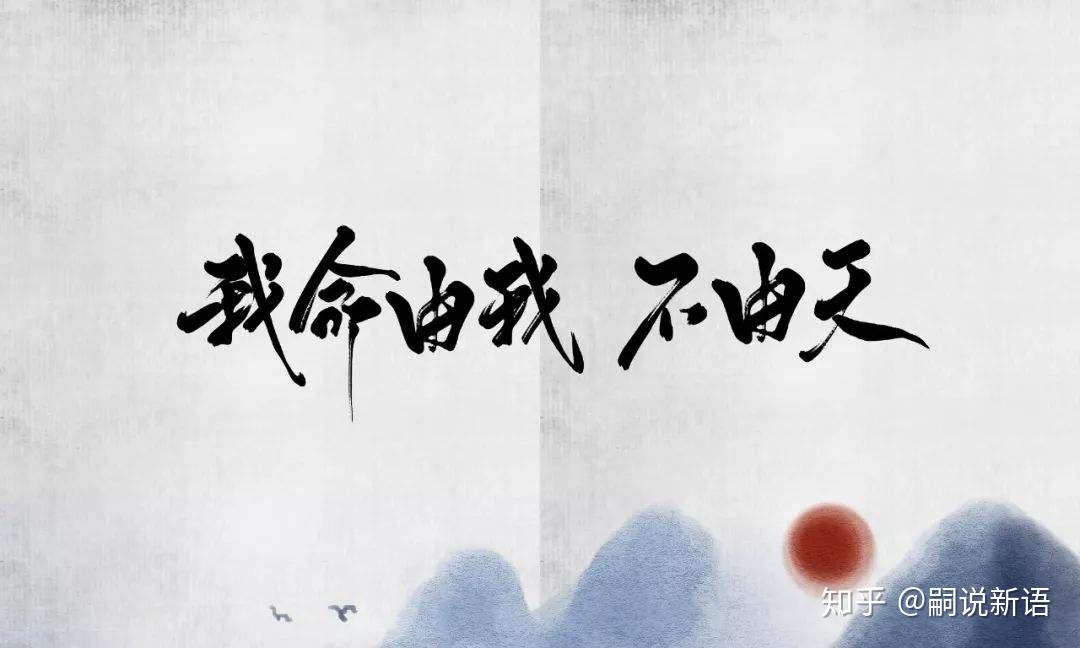 我命由我 不由天
知乎 @嗣说新语